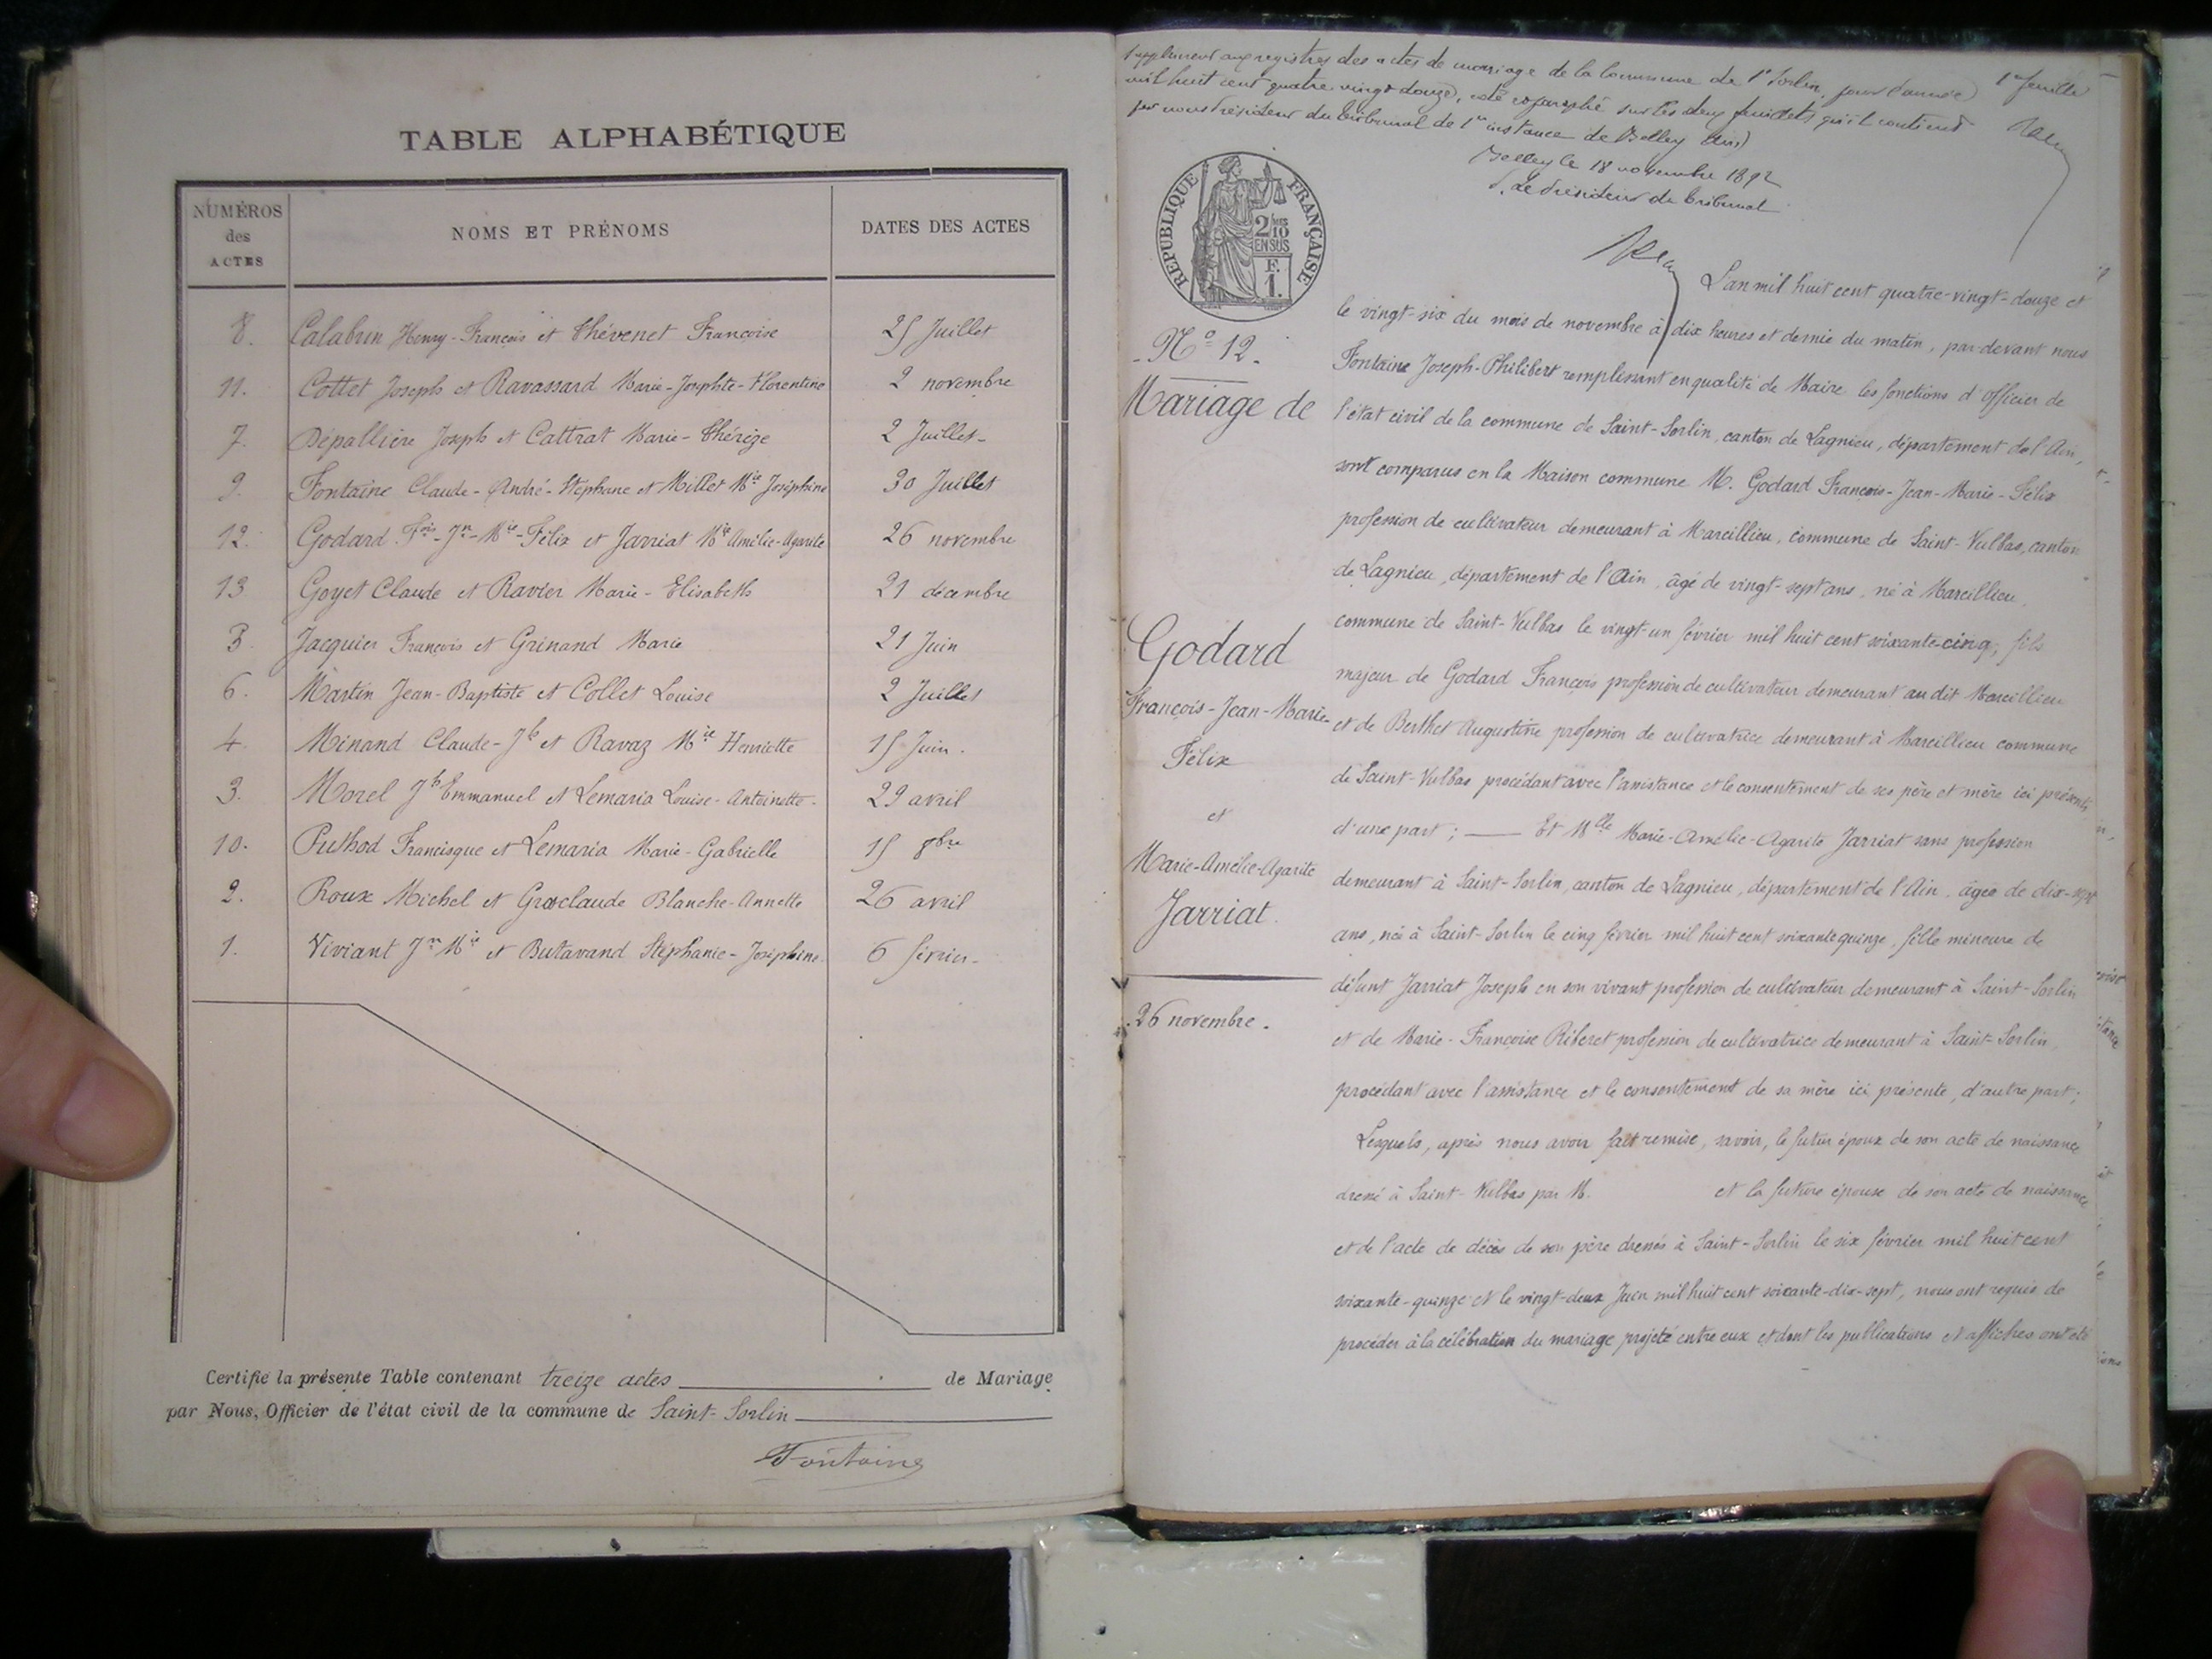 TABLE ALPHABÉTIQUE
NUMÉROS des ACTES
NOMS ET PRÉNOMS
DATES DES ACTES
8. Calabrin Henry-François et Thévenet Françoise 25 Juillet
11. Cottet Joseph et Ravassard Marie-Josephte-Florentine 2 novembre
7. Dépallière Joseph et Cattrat Marie-Thérèze 2 Juillet
9. Fontaine Claude-André-Stéphane et Millet Mie Joséphine 30 Juillet
12. Godard Fois-Jn-Mie-Félix et Jarriat Mie Amélie-Agarite 26 novembre
13 Goyet Claude et Ravier Marie-Elisabeth 21 décembre
Jacquier François et Grinand Marie 21 Juin
6. Martin Jean-Baptiste et Collet Louise 2 Juillet
4. Minand Claude-Jh et Ravaz Mie Henriette 15 Juin.
3. Morel Jh Emmanuel et Lemaria Louise-Antoinette 29 avril
10. Puthod Francisque et Lemaria Marie-Gabrielle 15 8bre
2. Roux Michel et Grosclaude Blanche-Annette 26 avril
1. Viviant Jn Mie et Butavand Stéphanie-Joséphine 6 février
Certifié la présente Table contenant treize actes de Mariage
par Nous, Officier de l'état civil de la commune de Saint-Sorlin
Fontaine
Supplément aux registres des actes de mariage de la Commune de St Sorlin, pour l'année 1er feuillet
mil huit cent quatre vingt douze, coté et paraphé sur les deux feuillets qu'il contient
par nous Président du tribunal de 1re instance de Belley (Ain)
Belley le 18 novembre 1892
Le Président du tribunal
RÉPUBLIQUE FRANÇAISE
2/10 EN SUS
F. 1.
No 12.
Mariage de
Godard
François-Jean-Marie-
Félix
et
Marie-Amélie-Agarite
Jarriat.
26 novembre.
L'an mil huit cent quatre-vingt-douze et
le vingt-six du mois de novembre à dix heures et demie du matin, par-devant nous
Fontaine Joseph-Philibert remplissant en qualité de Maire les fonctions d'officier de
l'état civil de la commune de Saint-Sorlin, canton de Lagnieu, département de l'Ain,
sont comparus en la Maison commune M. Godard François-Jean-Marie-Félix
profession de cultivateur demeurant à Marcillieu, commune de Saint-Vulbas, canton
de Lagnieu, département de l'Ain, âgé de vingt-sept ans, né à Marcillieu,
commune de Saint-Vulbas le vingt-un février mil huit cent soixante-cinq, fils
majeur de Godard François profession de cultivateur demeurant au dit Marcillieu
et de Berthet Augustine profession de cultivatrice demeurant à Marcillieu commune
de Saint-Vulbas procédant avec l'assistance et le consentement de ses père et mère ici présents,
d'une part ; Et Mlle Marie-Amélie-Agarite Jarriat sans profession
demeurant à Saint-Sorlin, canton de Lagnieu, département de l'Ain, âgée de dix-sept
ans, née à Saint-Sorlin le cinq février mil huit cent soixante quinze, fille mineure de
défunt Jarriat Joseph en son vivant profession de cultivateur demeurant à Saint-Sorlin
et de Marie-Françoise Riberet profession de cultivatrice demeurant à Saint-Sorlin,
procédant avec l'assistance et le consentement de sa mère ici présente, d'autre part ;
Lesquels, après nous avoir fait remise, savoir, le futur époux de son acte de naissance
dressé à Saint-Vulbas par M. et la future épouse de son acte de naissance
et de l'acte de décès de son père dressés à Saint-Sorlin le six février mil huit cent
soixante-quinze et le vingt-deux Juin mil huit cent soixante-dix-sept, nous ont requis de
procéder à la célébration du mariage projeté entre eux et dont les publications et affiches ont été